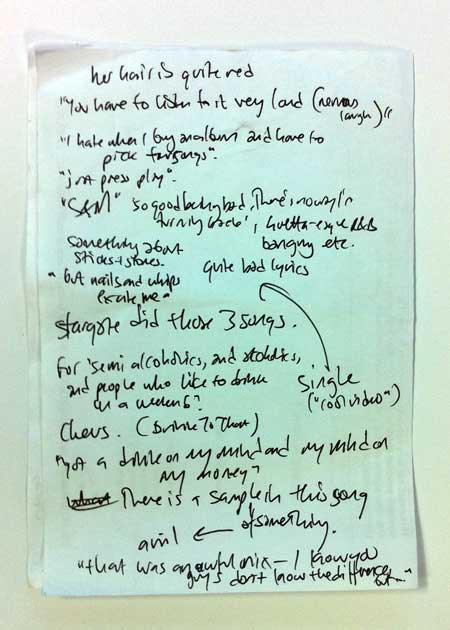 her hair is quite red
"You have to listen to it very loud (nervous laugh)"
"I hate when I buy an album and have to
pick fav songs".
"just press play".
"S&M" 'so good being bad, There's no way I'm
turning back',
Guetta-esque R&B
banging etc.
Something about
sticks + stones.
quite bad lyrics
"but nails and whips
excite me"
Stargate did those 3 songs.
For 'semi alcoholics, and alcoholics,
and people who like to drink
on a weekend?
Single
("cool video")
Cheers. (Drink To That)
"got a drink on my mind and my mind on
my money"
There is a sample in this song
of something.
avril
"that was an awful mix – I know you
guys don't know the difference
but..."